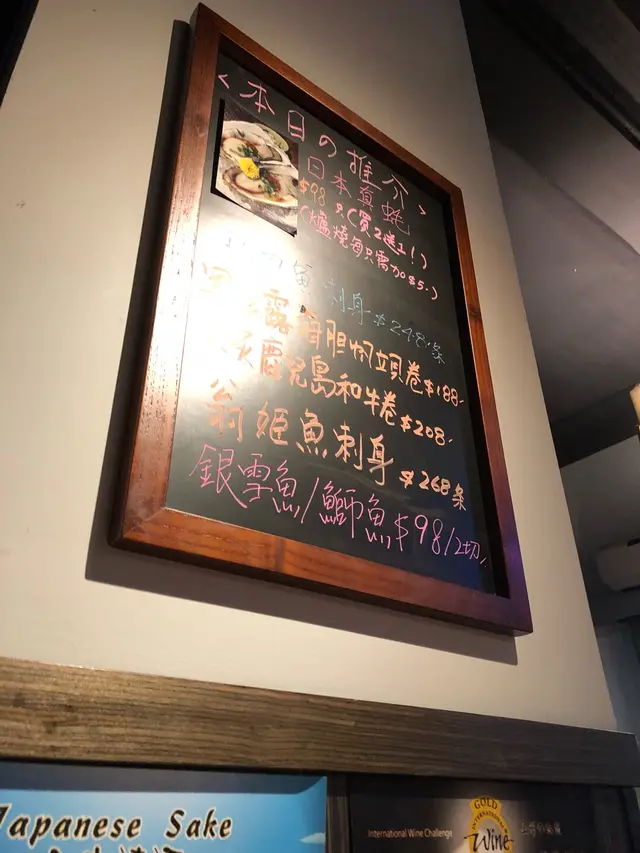 <本日の推介>
日本真蠔
$98 只(買2送1!)
(爐燒每只需加$5.)
魚刺身 $248.條
露海胆帆立貝卷 $188-
鹿兒島和牛卷 $208-
翁姫魚刺身 $268條
銀雪魚/鰤魚 $98/2切
Japanese Sake
International Wine Challenge
GOLD
INTERNATIONAL
Wine